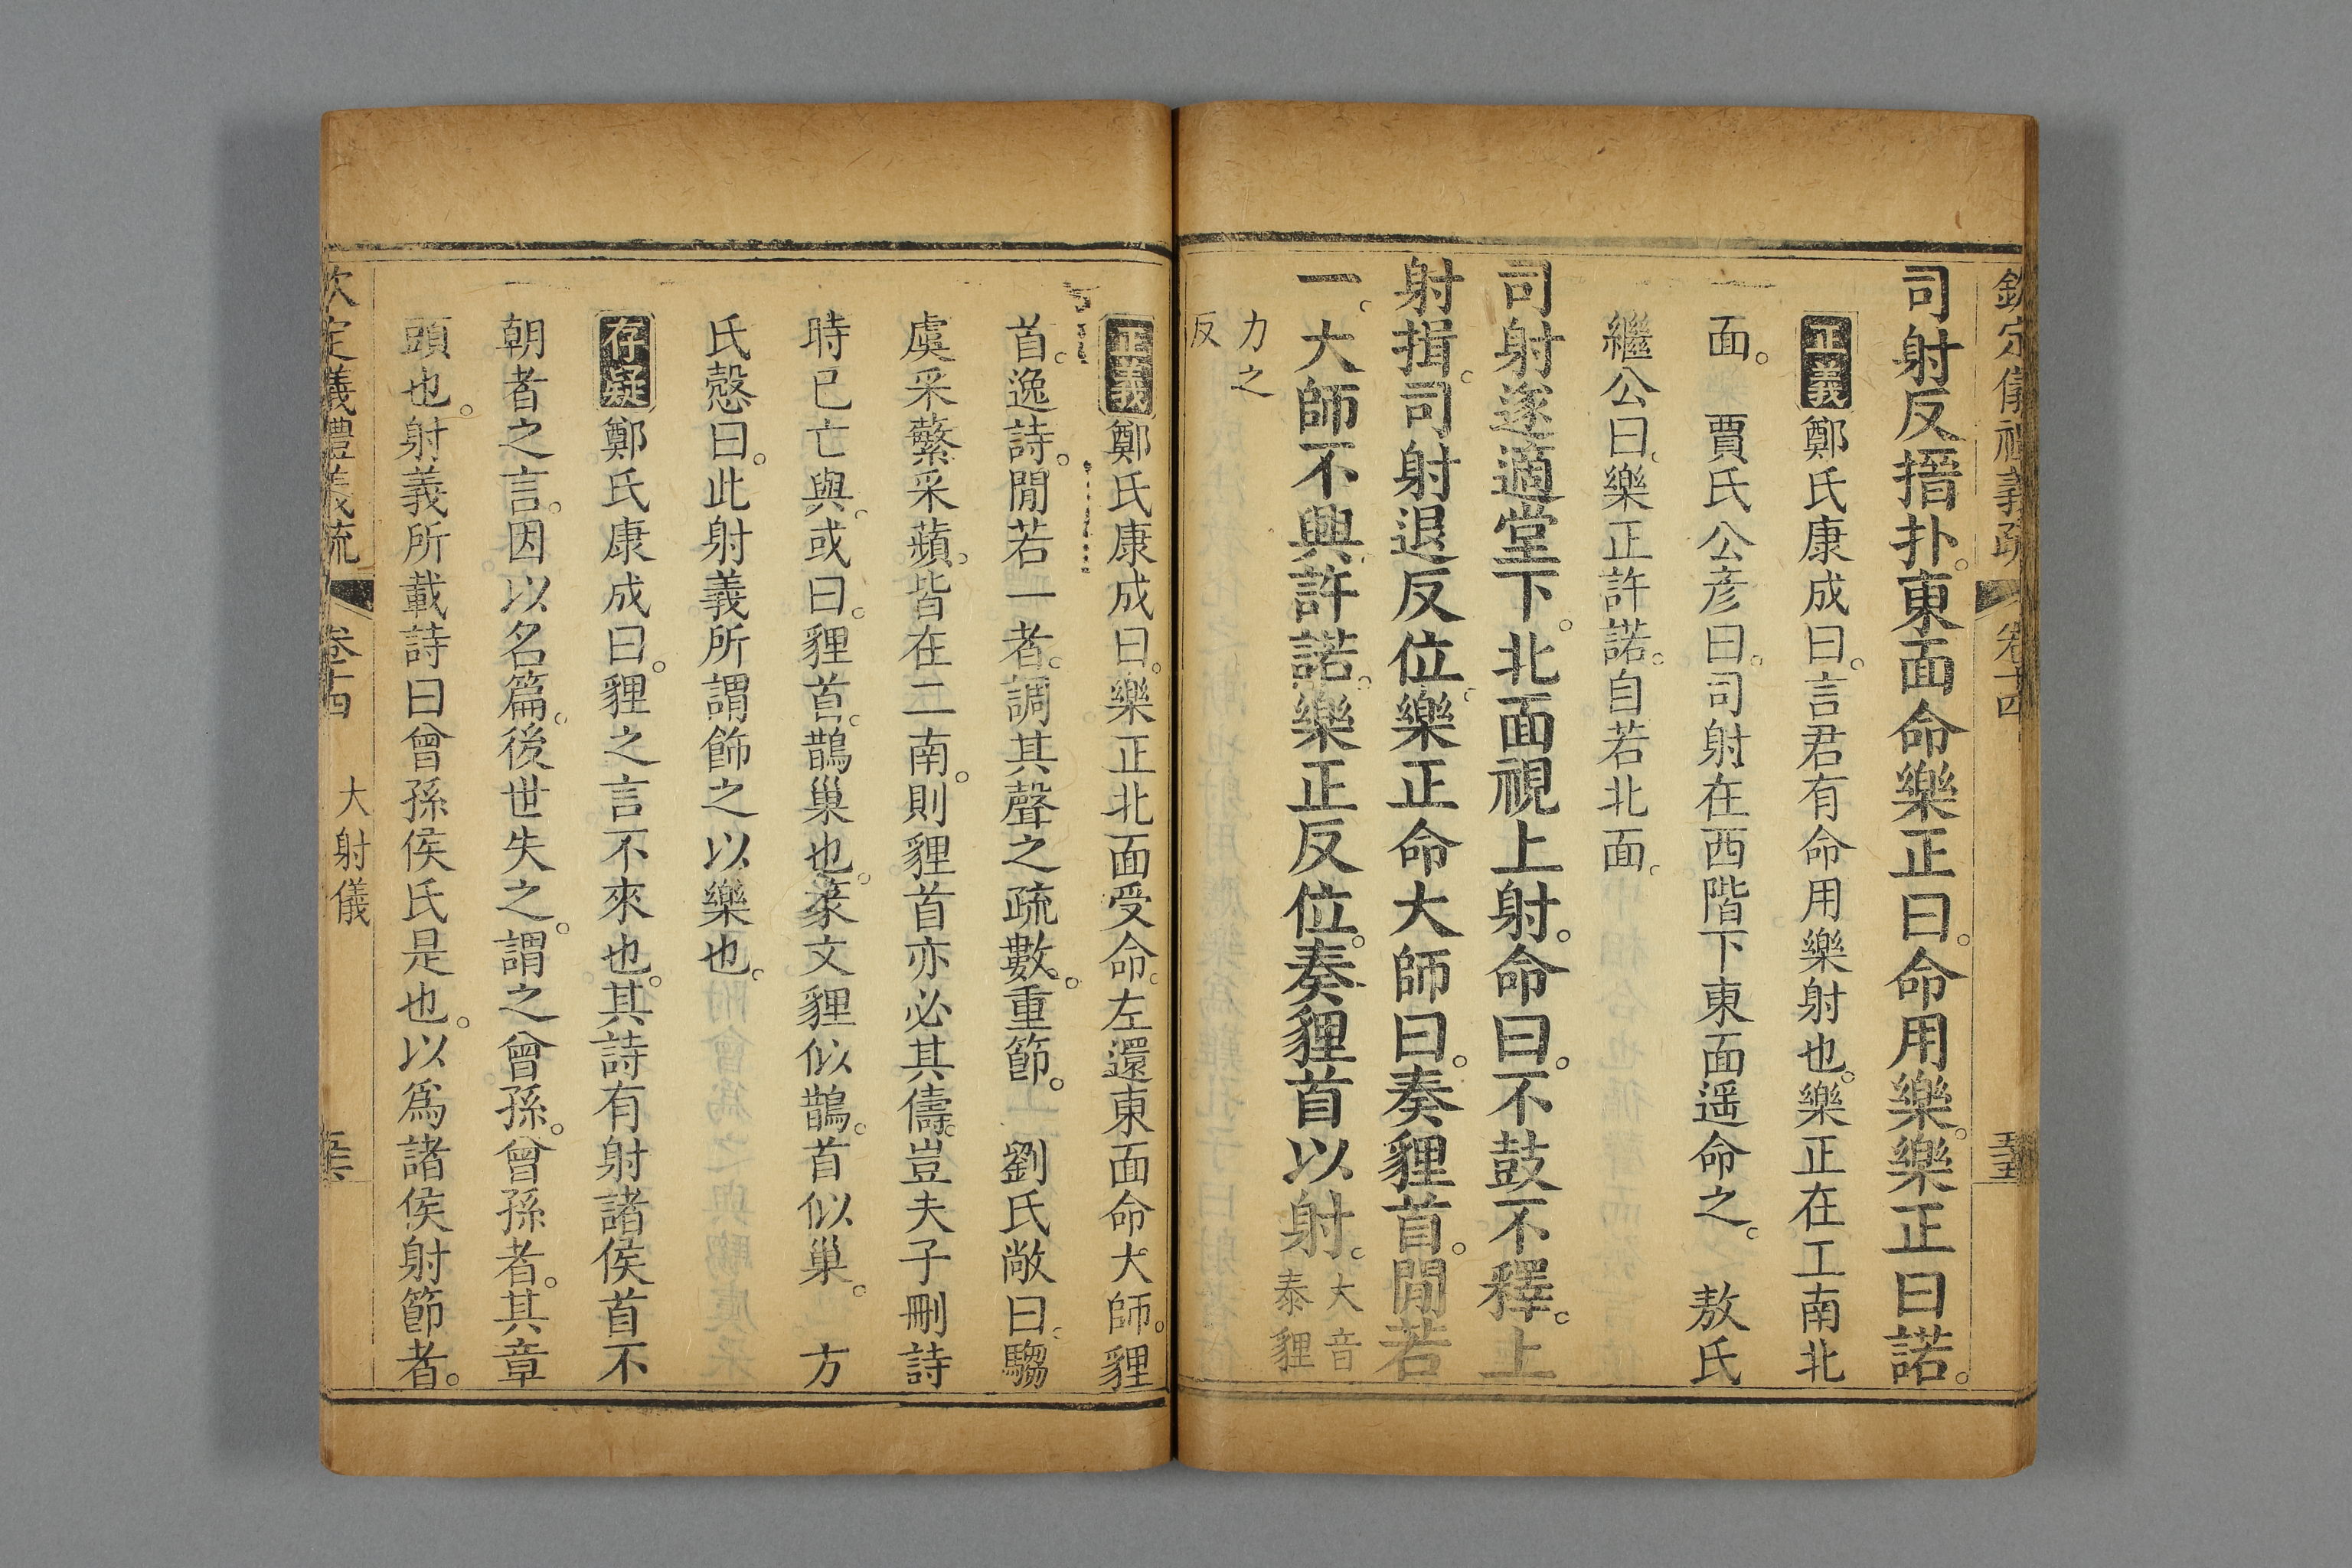 欽定儀禮義疏 卷十四
司射反搢扑。東面命樂正曰。命用樂。樂正曰諾。
正義鄭氏康成曰。言君有命用樂射也。樂正在工南北
面。 賈氏公彦曰。司射在西階下東面遥命之。 敖氏
繼公曰。樂正許諾。自若北面。
司射遂適堂下。北面視上射。命曰。不鼓不釋。上
射揖。司射退反位。樂正命大師曰。奏貍首。閒若
一。大師不興。許諾。樂正反位。奏貍首以射。大音泰貍
力之反
正義鄭氏康成曰。樂正北面受命。左還東面命大師。貍
首。逸詩。閒若一者。調其聲之疏數。重節。 劉氏敞曰。騶
虞采蘩采蘋。皆在二南。則貍首亦必其儔。豈夫子刪詩
時已亡與。或曰。貍首。鵲巢也。篆文貍似鵲。首似巢。 方
氏慤曰。此射義所謂飾之以樂也。
存疑鄭氏康成曰。貍之言不來也。其詩有射諸侯首不
朝者之言。因以名篇。後世失之。謂之曾孫。曾孫者。其章
頭也。射義所載詩曰曾孫侯氏是也。以爲諸侯射節者。
欽定儀禮義疏 卷十四 大射儀